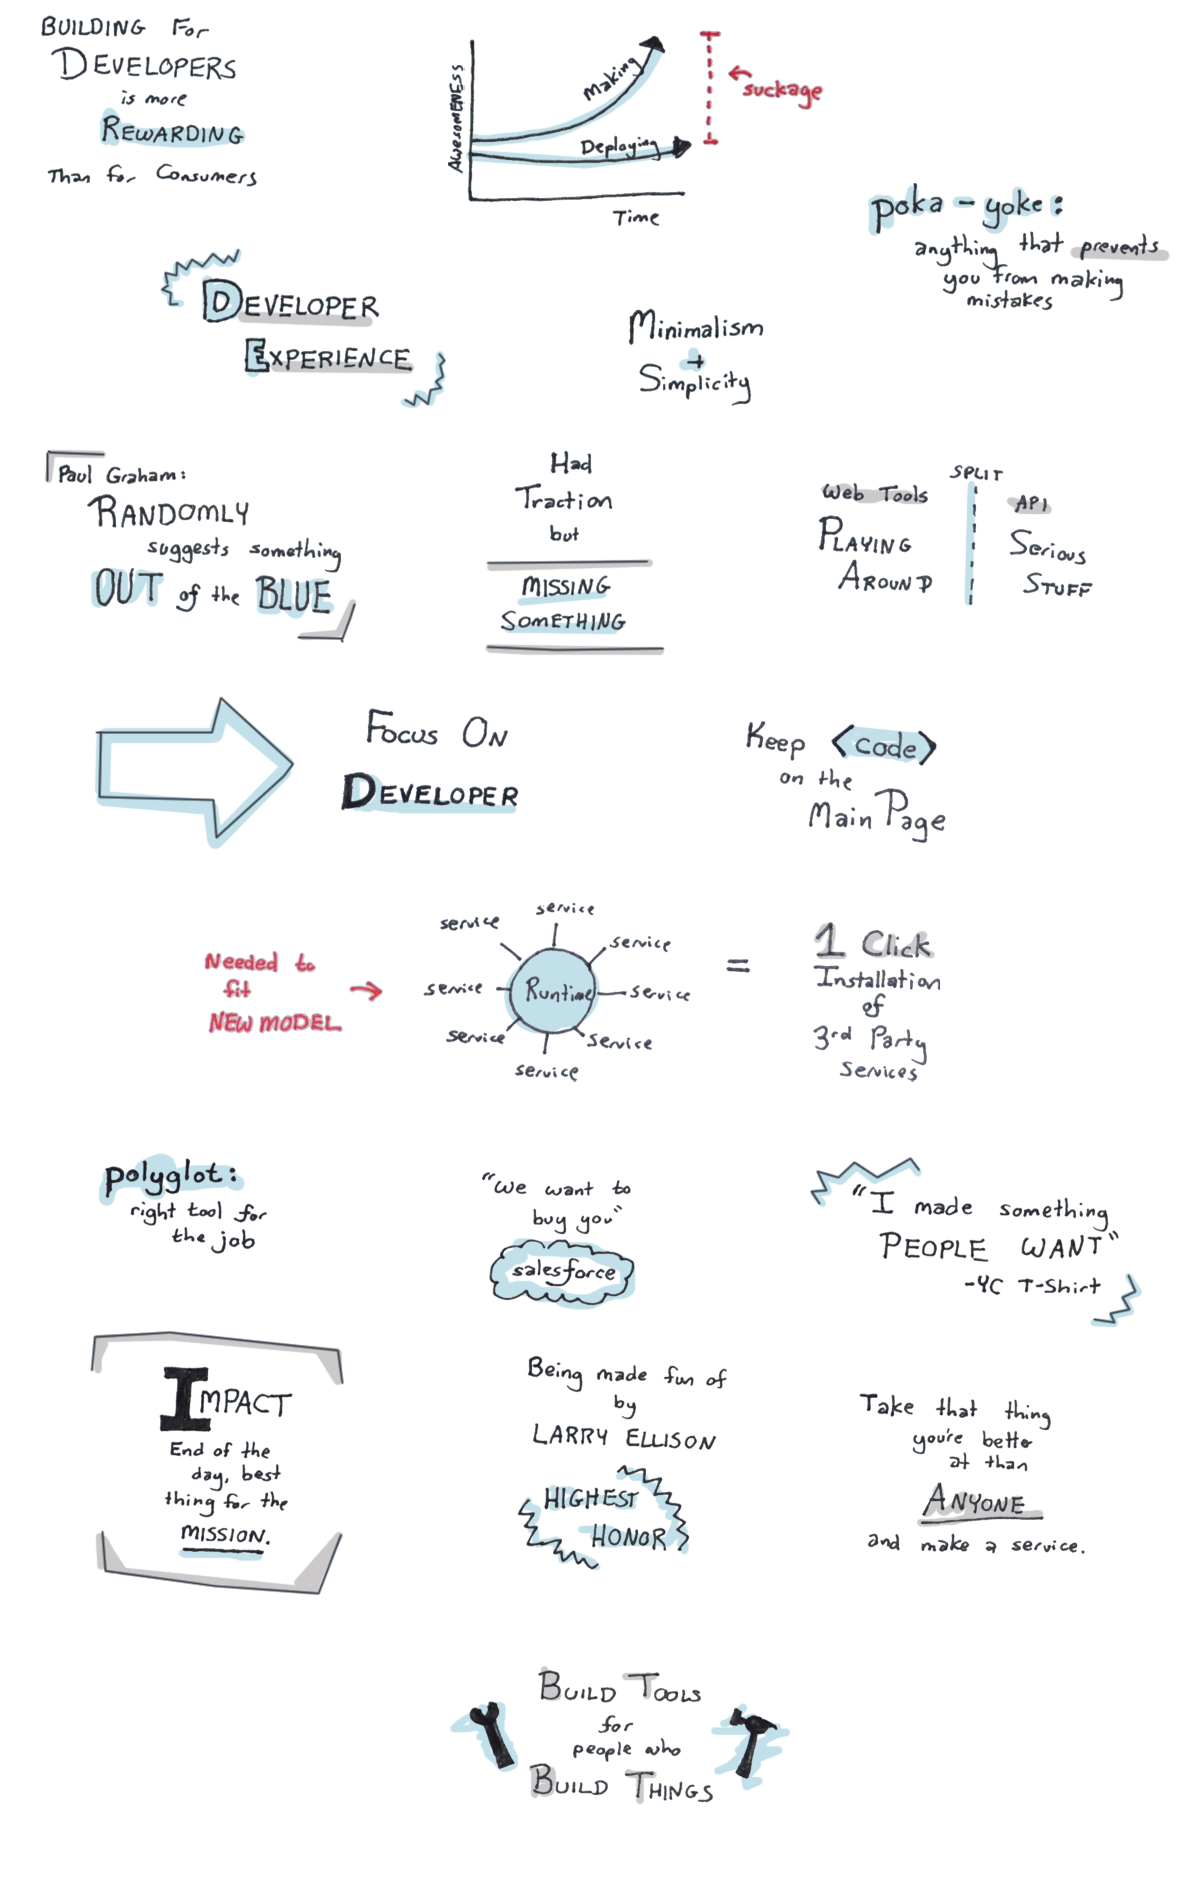 BUILDING For
DEVELOPERS
is more
REWARDING
Than for Consumers
AWESOMENESS
Making
Deploying
Time
suckage
poka-yoke:
anything that prevents
you from making
mistakes
DEVELOPER
EXPERIENCE
Minimalism
+
Simplicity
Paul Graham:
RANDOMLY
suggests something
OUT of the BLUE
Had
Traction
but
MISSING
SOMETHING
SPLIT
Web Tools
PLAYING
AROUND
API
Serious
STUFF
Focus On
DEVELOPER
Keep <code>
on the
Main Page
Needed to
fit
NEW MODEL
service
service
service
service
Runtime
service
service
service
service
=
1 Click
Installation
of
3rd Party
Services
polyglot:
right tool for
the job
"We want to
buy you"
salesforce
"I made something
PEOPLE WANT"
-YC T-Shirt
IMPACT
End of the
day, best
thing for the
MISSION.
Being made fun of
by
LARRY ELLISON
HIGHEST
HONOR
Take that thing
you're better
at than
ANYONE
and make a service.
BUILD TOOLS
for
people who
BUILD THINGS